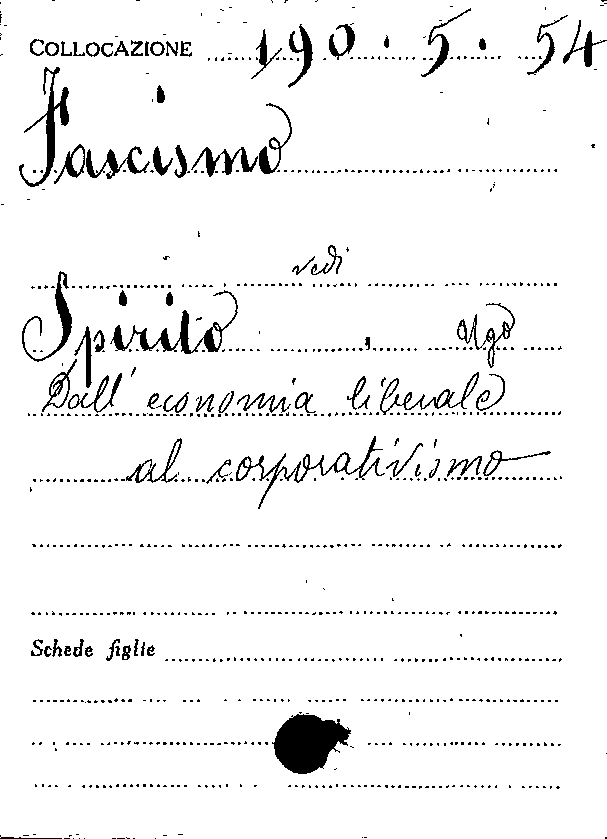 COLLOCAZIONE 190.5.54
Fascismo
vedi
Spirito, Ugo
Dall'economia liberale
al corporativismo
Schede figlie